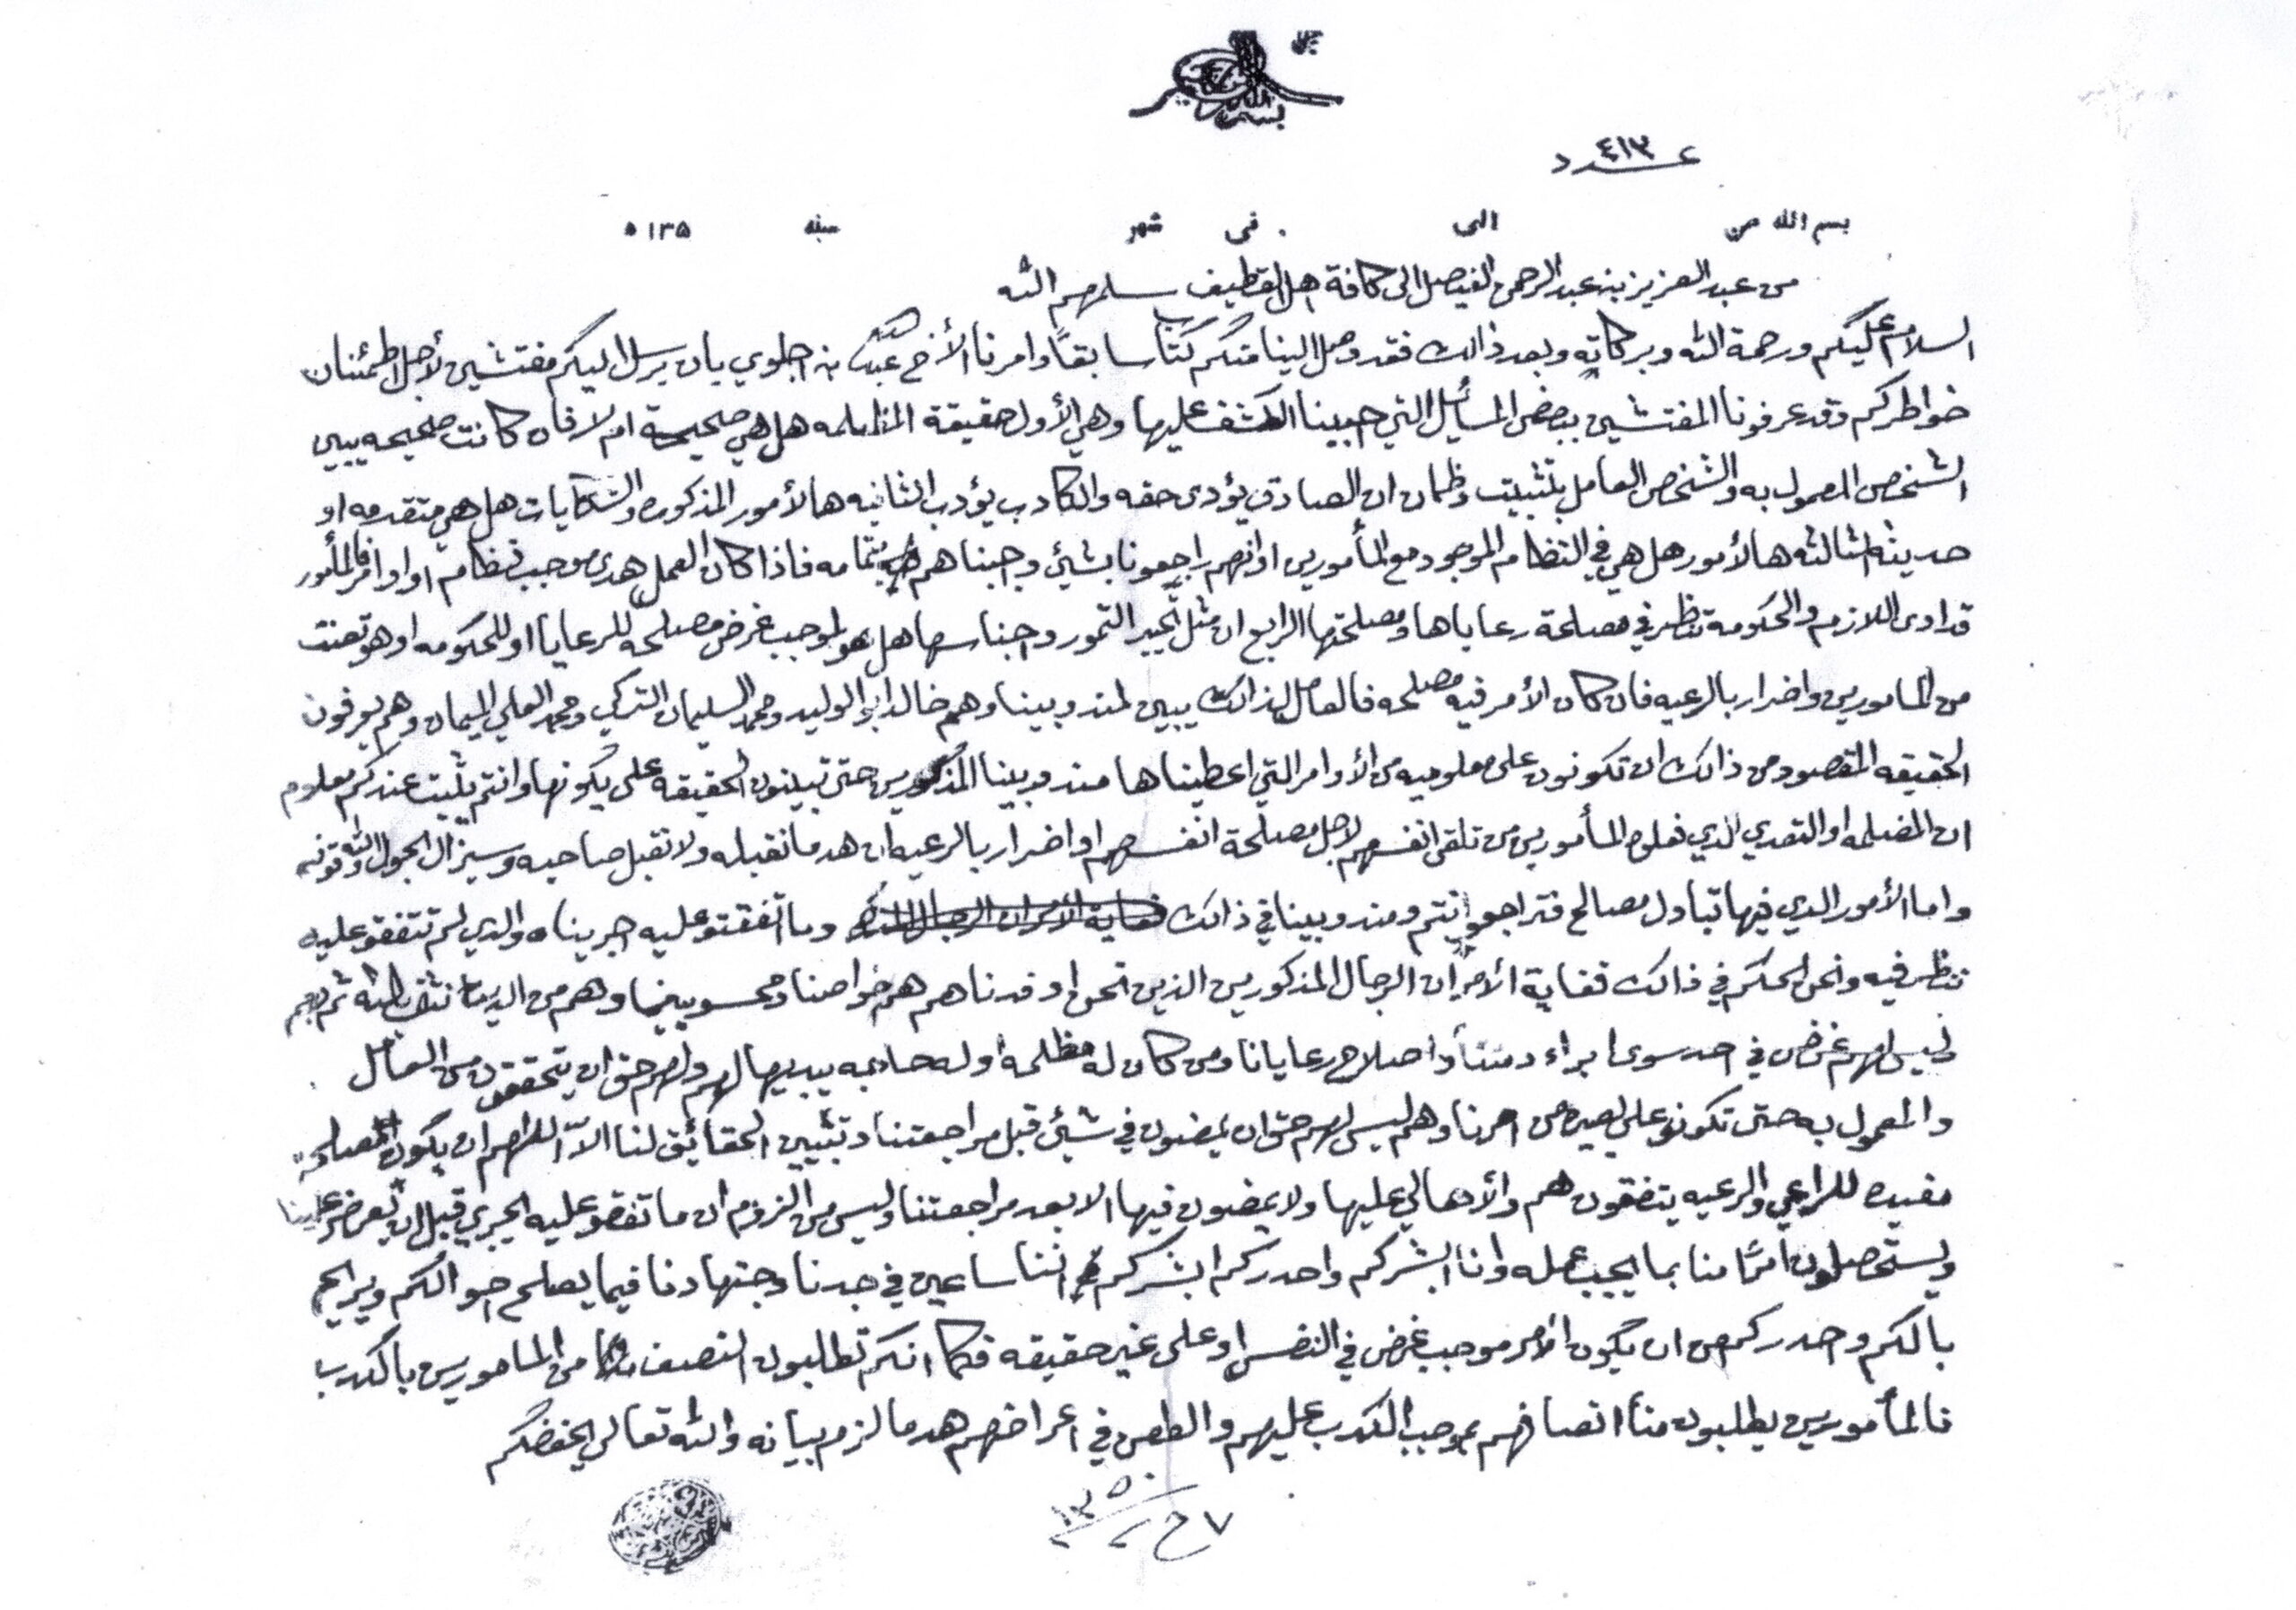 عدد ٤١٣
بسم الله من الى في شهر سنه ١٣٥
من عبد العزيز بن عبد الرحمن الفيصل الى كافة اهل القطيف سلمهم الله
السلام عليكم ورحمة الله وبركاته وبعد ذالك فقد وصل الينا منكم كتاب سابقاً وامرنا الأخ عبدالله بن اجلوي بان يرسل اليكم مفتشين لأجل اطمئنان
خواطركم وقد عرفونا المفتشين ببعض المسائل التي حبينا الكشف عليها وهي الأول حقيقة المظلمه هل هي صحيحة ام لا فان كانت صحيحه يبين
الشخص المعمول به والشخص العامل بتثبيت وظمان ان الصادق يؤدى حقه والكادب يؤدب الثانيه هالأمور المذكوره والشكايات هل هي متقدمه او
حديثه الثالثه هالأمور هل هي في النظام الموجود مع المأمورين او انهم راجعونا بشيئ وجبناهم بتمامه فاذا كان العمل هدى موجب نظام او اوامر فالمأمور
قد ادى اللازم والحكومة تنظر في مصلحة رعاياها ومصلحتها الرابع ان مثل تجبير التمور وجناسها هل هو بموجب غرض مصلحه للرعايا او للحكومه او هو تعنت
من المامورين واضرار بالرعيه فان كان الأمر فيه مصلحه فالعامل لذالك يبين لمندوبينا وهم خالد ابو الوليد ومحمد السليمان التركي ومحمد العلي اليمان وهم يعرفون
الحقيقه المقصود من ذالك ان تكونون على معلوميه من الأوامر التي اعطيناها مندوبينا المذكورين حتى تبينون الحقيقه على يكونها وانتم يثبت عندكم معلوم
ان المضلمه او التعدي الذي فعلوه المأمورين من تلقى انفسهم لاجل مصلحة انفسهم او اضرار بالرعيه ان هد ما نقبله ولا نقبل صاحبه وسيزال بحول الله وقوته
واما الأمور الدي فيها تبادل مصالح فتراجعو انتم ومندوبينا في ذالك وما اتفقتو عليه اجريناه والدي لم تتفقو عليه
ننظر فيه ونحن الحكم في ذالك فغاية الأمر ان الرجال المذكورين الذين نحن اوفدناهم هم خواصنا ومحسوبيننا وهم من الدين نثق بالله ثم بهم
وليس لهم غرض في احد سوى ابراء دمتنا واصلاح رعايانا ومن كان له مظلمه او له حاجه يبديها لهم ولهم حق ان يتحققون من العامل
والمعمول به حتى تكونو على بصيره من امرنا وهم ليس لهم حق ان يمضون في شيئ قبل مراجعتنا وتبيين الحقائق لنا الاّ اللهم ان يكون المصلحة
مفيده للراعي والرعيه يتفقون هم والأهالي عليها ولا يمضون فيها الا بعد مراجعتنا وليس من الزوم ان ما تفقو عليه ايجري قبل ان يعرض علينا
ويستحصلون امرًا منا بما يجب عمله وانا ابشركم واحدركم ابشركم اننا ساعين في جدنا وجتهادنا فيما يصلح احوالكم ويريح
بالكم وحدركم من ان يكون الأمر موجب غرض في النفس او على غير حقيقه فكما انكم تطلبون النصف من المامورين بالكدب
فالمأمورين يطلبون منا انصافهم بموجب الكدب عليهم والطعن في اعراضهم هد ما لزم بيانه والله تعالى يحفظكم